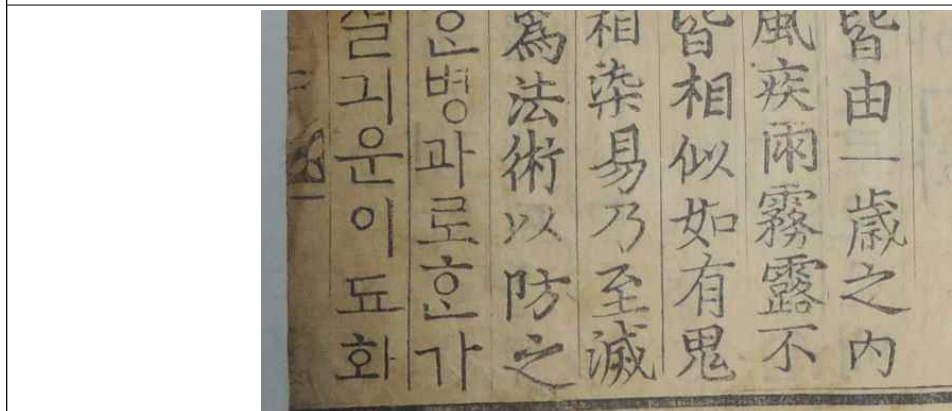 皆由一歲之內
風疾雨霧露不
皆相似如有鬼
相染易乃至滅
爲法術以防之
병과로ᄒᆞᆫ가
긔운이됴화